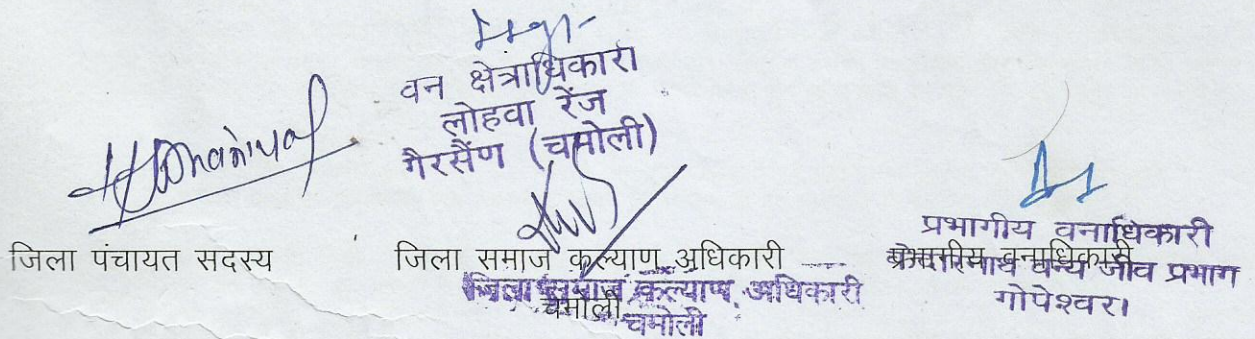 वन क्षेत्राधिकारी
लोहवा रेंज
गैरसैंण (चमोली)
जिला पंचायत सदस्य
जिला समाज कल्याण अधिकारी
चमोली
जिला समाज कल्याण अधिकारी
चमोली
प्रभागीय वनाधिकारी
प्रभागीय वनाधिकारी
केदारनाथ वन्य जीव प्रभाग
गोपेश्वर।